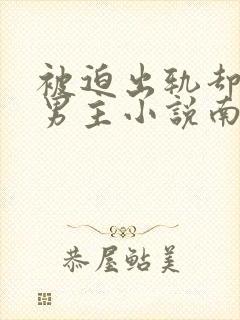 被迫出轨却
男主小説南
恭屋鮎美